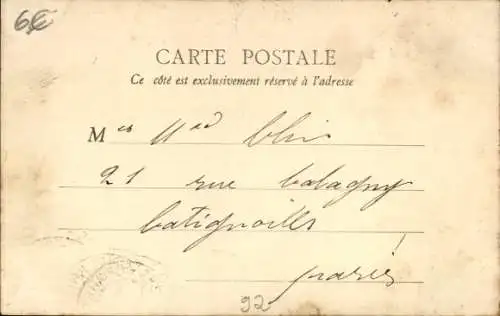 6€
CARTE POSTALE
Ce côté est exclusivement réservé à l'adresse
M
21 rue balagny
batignolles
paris
92